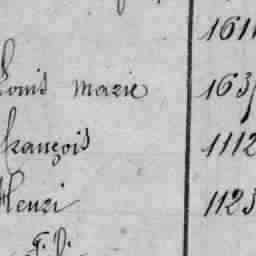 161
Louis Marie 163
françois 1112
Henri 1123